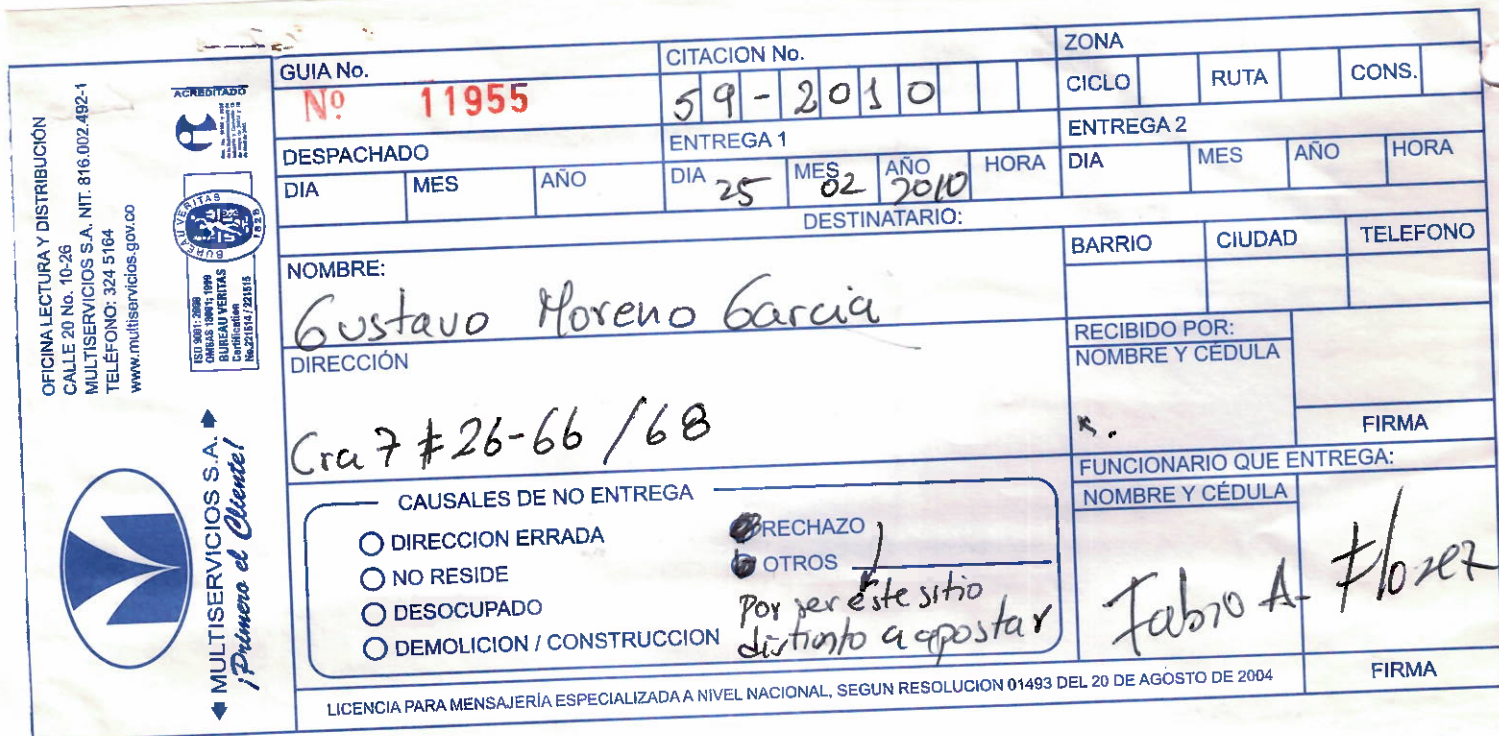 OFICINA LECTURA Y DISTRIBUCIÓN
CALLE 20 No. 10-26
MULTISERVICIOS S.A. NIT. 816.002.492-1
TELÉFONO: 324 5164
www.multiservicios.gov.co
ACREDITADO
BUREAU VERITAS
1828
ISO 9001: 2000
OHSAS 18001; 1999
BUREAU VERITAS
Certification
No.221514 / 221515
MULTISERVICIOS S.A.
¡Primero el Cliente!
GUIA No.
Nº 11955
CITACION No.
59-2010
ZONA
CICLO RUTA CONS.
DESPACHADO
DIA MES AÑO
ENTREGA 1
DIA 25 MES 02 AÑO 2010 HORA
ENTREGA 2
DIA MES AÑO HORA
DESTINATARIO:
NOMBRE:
Gustavo Moreno Garcia
BARRIO CIUDAD TELEFONO
DIRECCIÓN
Cra 7 # 26-66 /68
RECIBIDO POR:
NOMBRE Y CÉDULA
FIRMA
CAUSALES DE NO ENTREGA
DIRECCION ERRADA
NO RESIDE
DESOCUPADO
DEMOLICION / CONSTRUCCION
RECHAZO
OTROS
Por ser éste sitio
distinto a apostar
FUNCIONARIO QUE ENTREGA:
NOMBRE Y CÉDULA
Fabio A. Florez
FIRMA
LICENCIA PARA MENSAJERÍA ESPECIALIZADA A NIVEL NACIONAL, SEGUN RESOLUCION 01493 DEL 20 DE AGOSTO DE 2004